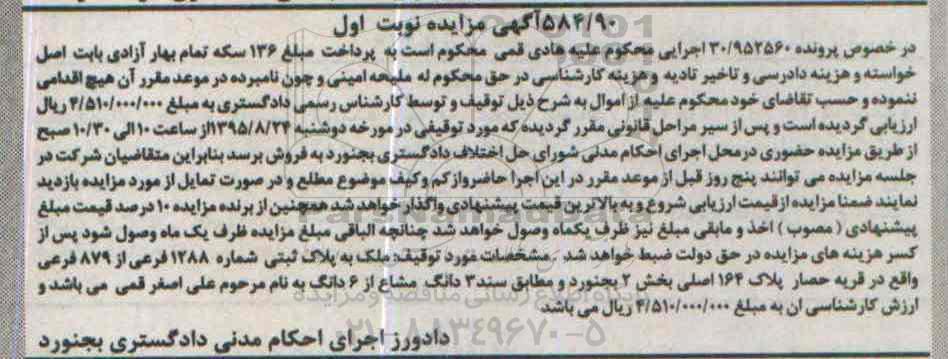 ۵۸۴/۹۰آگهی مزایده نوبت اول
در خصوص پرونده ۳۰/۹۵۲۵۶۰ اجرایی محکوم علیه هادی قمی محکوم است به پرداخت مبلغ ۱۳۶ سکه تمام بهار آزادی بابت اصل
خواسته و هزینه دادرسی و تاخیر تادیه وهزینه کارشناسی در حق محکوم له ملیحه امینی و چون نامبرده در موعد مقرر آن هیچ اقدامی
ننموده و حسب تقاضای خود محکوم علیه از اموال به شرح ذیل توقیف و توسط کارشناس رسمی دادگستری به مبلغ ۴/۵۱۰/۰۰۰/۰۰۰ ریال
ارزیابی گردیده است و پس از سیر مراحل قانونی مقرر گردیده که مورد توقیفی در مورخه دوشنبه ۱۳۹۵/۸/۲۴از ساعت ۱۰الی ۱۰/۳۰ صبح
از طریق مزایده حضوری درمحل اجرای احکام مدنی شورای حل اختلاف دادگستری بجنورد به فروش برسد بنابراین متقاضیان شرکت در
جلسه مزایده می توانند پنج روز قبل از موعد مقرر در این اجرا حاضرواز کم وکیف موضوع مطلع و در صورت تمایل از مورد مزایده بازدید
نمایند ضمنا مزایده از قیمت ارزیابی شروع و به بالاترین قیمت پیشنهادی واگذار خواهد شد همچنین از برنده مزایده ۱۰ درصد قیمت مبلغ
پیشنهادی ( مصوب ) اخذ و مابقی مبلغ نیز ظرف یکماه وصول خواهد شد چنانچه الباقی مبلغ مزایده ظرف یک ماه وصول شود پس از
کسر هزینه های مزایده در حق دولت ضبط خواهد شد . مشخصات مورد توقیف: ملک به پلاک ثبتی شماره ۱۲۸۸ فرعی از ۸۷۹ فرعی
واقع در قریه حصار پلاک ۱۶۴ اصلی بخش ۲ بجنورد و مطابق سند۳ دانگ مشاع از ۶ دانگ به نام مرحوم علی اصغر قمی می باشد و
ارزش کارشناسی ان به مبلغ ۴/۵۱۰/۰۰۰/۰۰۰ ریال می باشد
دادورز اجرای احکام مدنی دادگستری بجنورد
ParsNamadData
۰۲۱-۸۸۳۴۹۶۷۰-۵